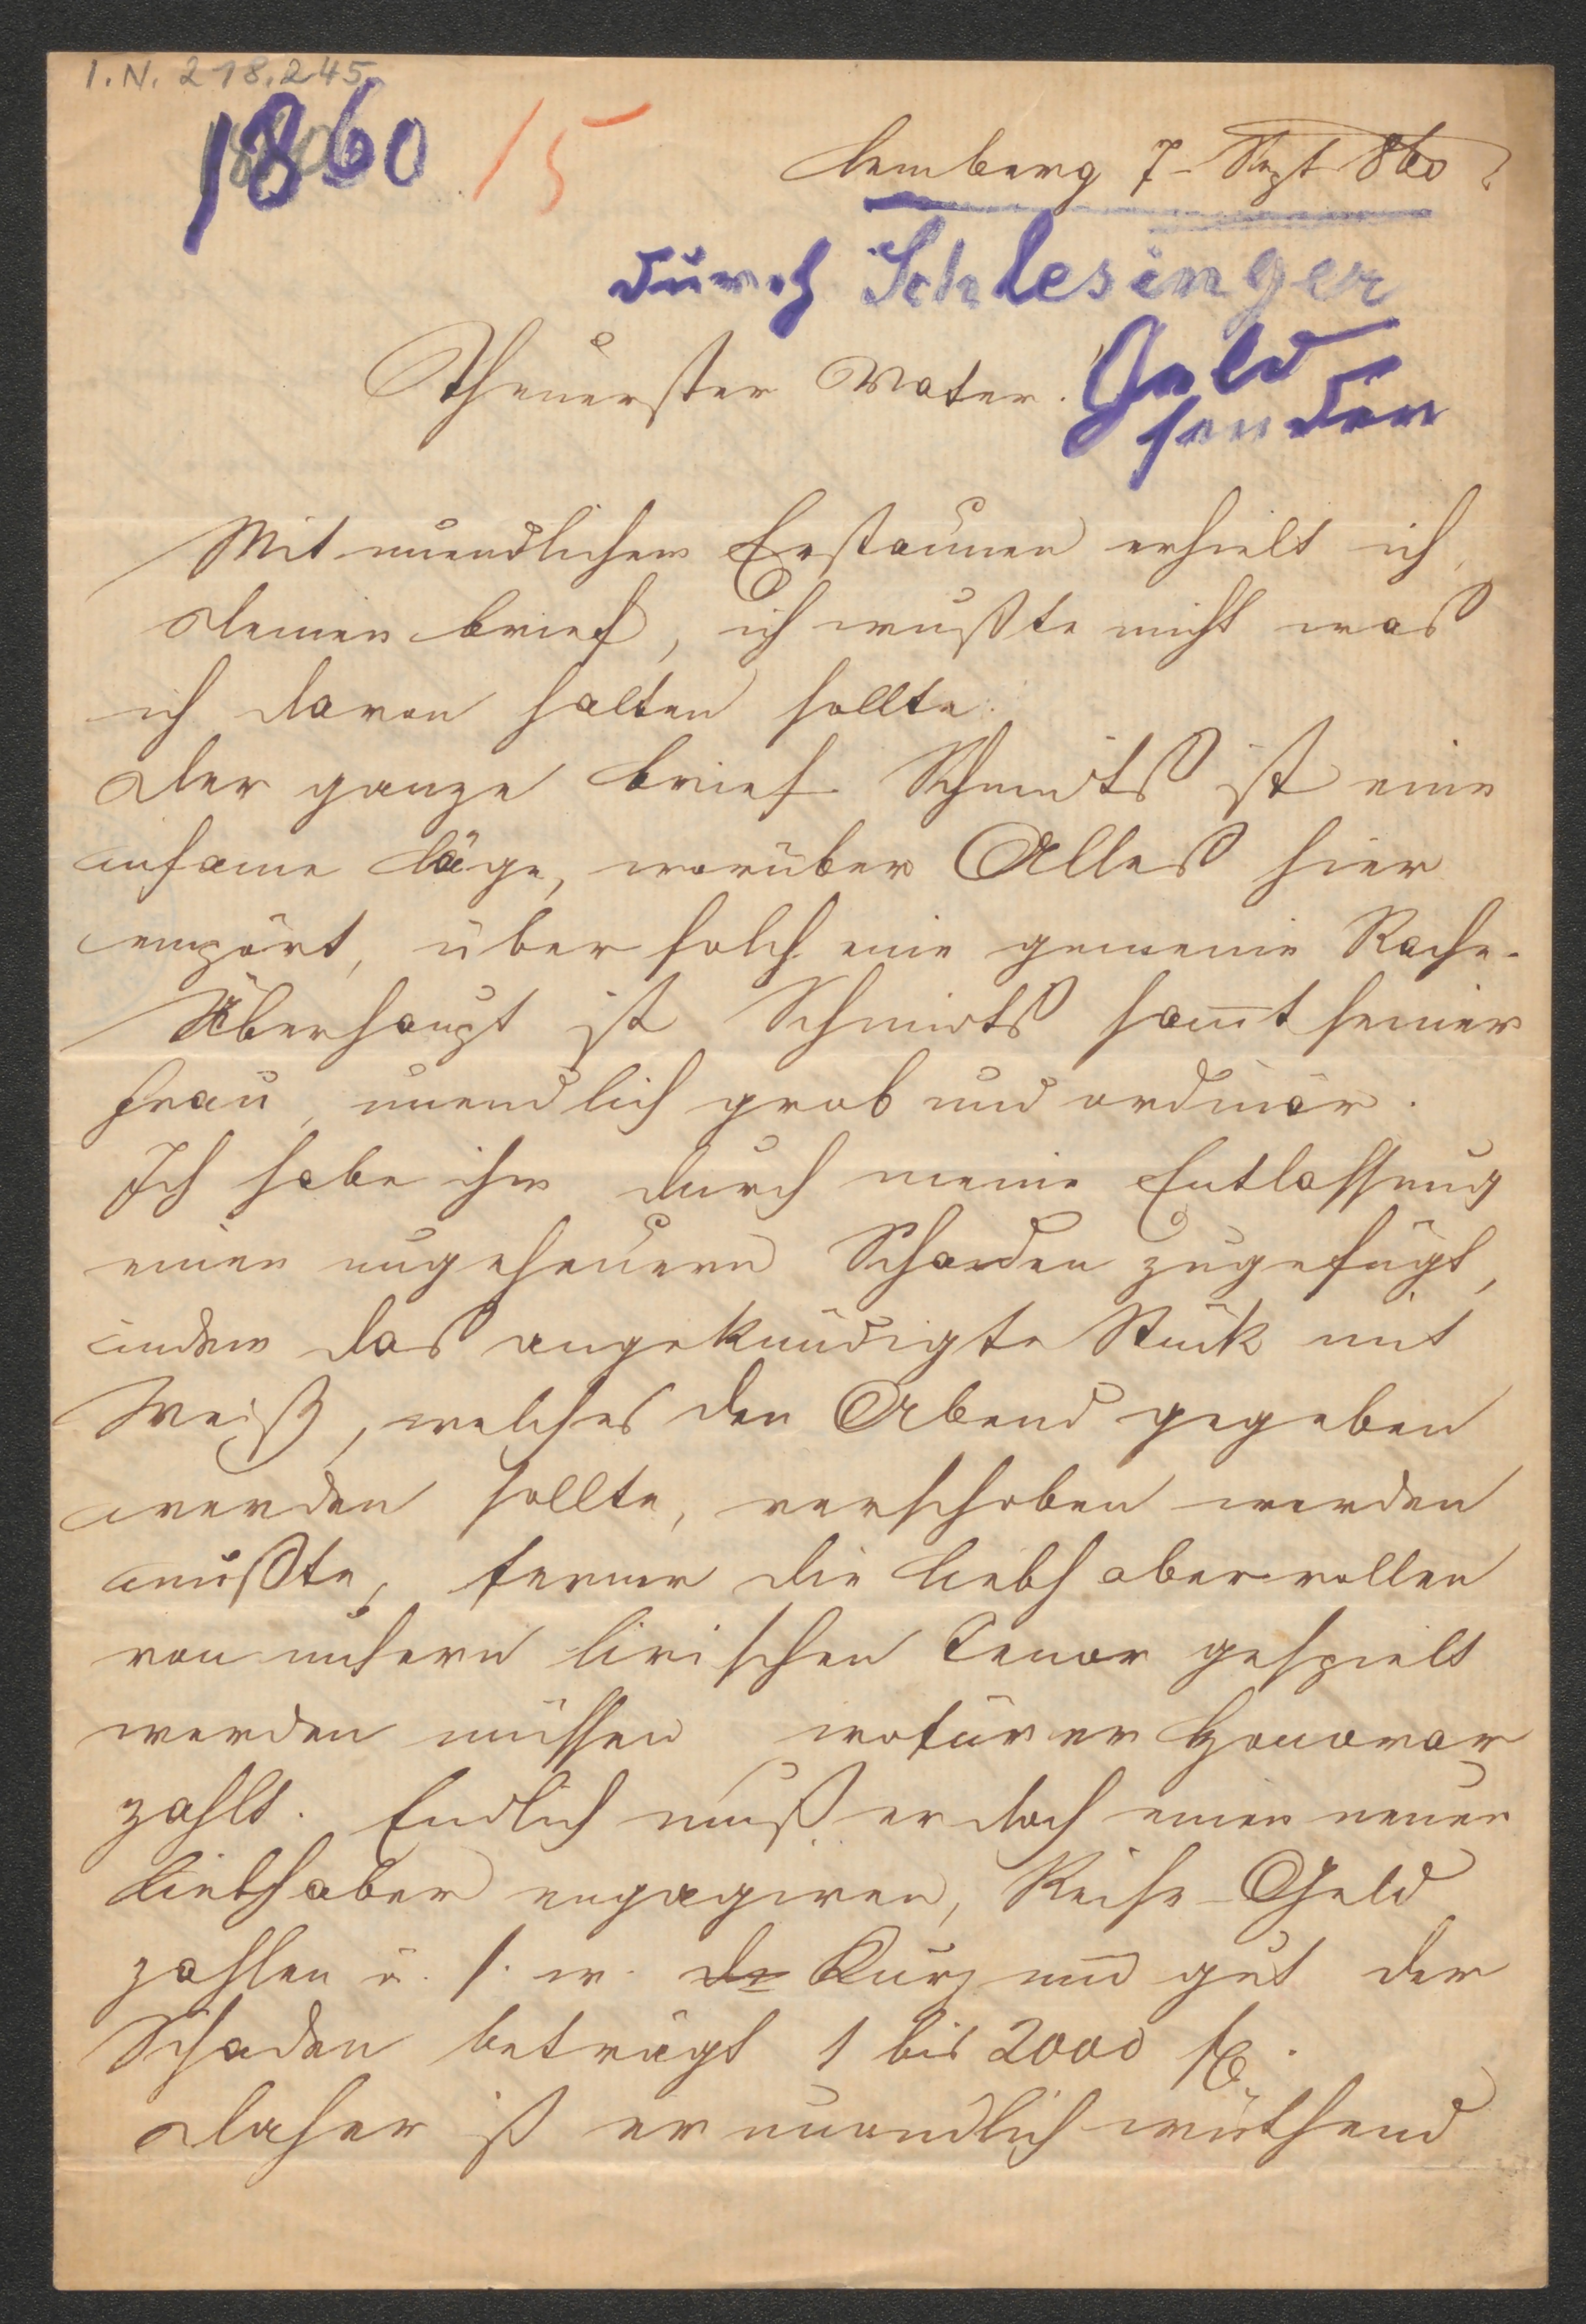 I.N. 218.245
1860 15
Lemberg 7- Sept 860
durch Schlesinger
Theuerster Vater! Geld
senden
Mit unendlichem Erstaunen erhielt ich
Deinen Brief, ich wußte nicht was
ich davon halten sollte.
Der ganze Brief Schmidts ist eine
infame Lüge, worüber Alles hier
empört, über solch eine gemeine Rache.
Überhaupt ist Schmidts sam̅t seiner
Frau, unendlich grob und ordinär.
Ich habe ihm durch meine Entlassung
einen ungeheuern Schaden zugefügt,
indem das angekündigte Stück mit
Weiß, welches den Abend gegeben
werden sollte, verschoben werden
mußte, ferner die Liebhaberrollen
von unsern lirischen Tenor gespielt
werden müssen wofür er Honorar
zahlt. Endlich muß er doch einen neuen
Liebhaber engagiren, Reise-Geld
zahlen u. s. w. Kurz und gut der
Schaden beträgt 1 bis 2000 fl.
Daher ist er unendlich wüthend